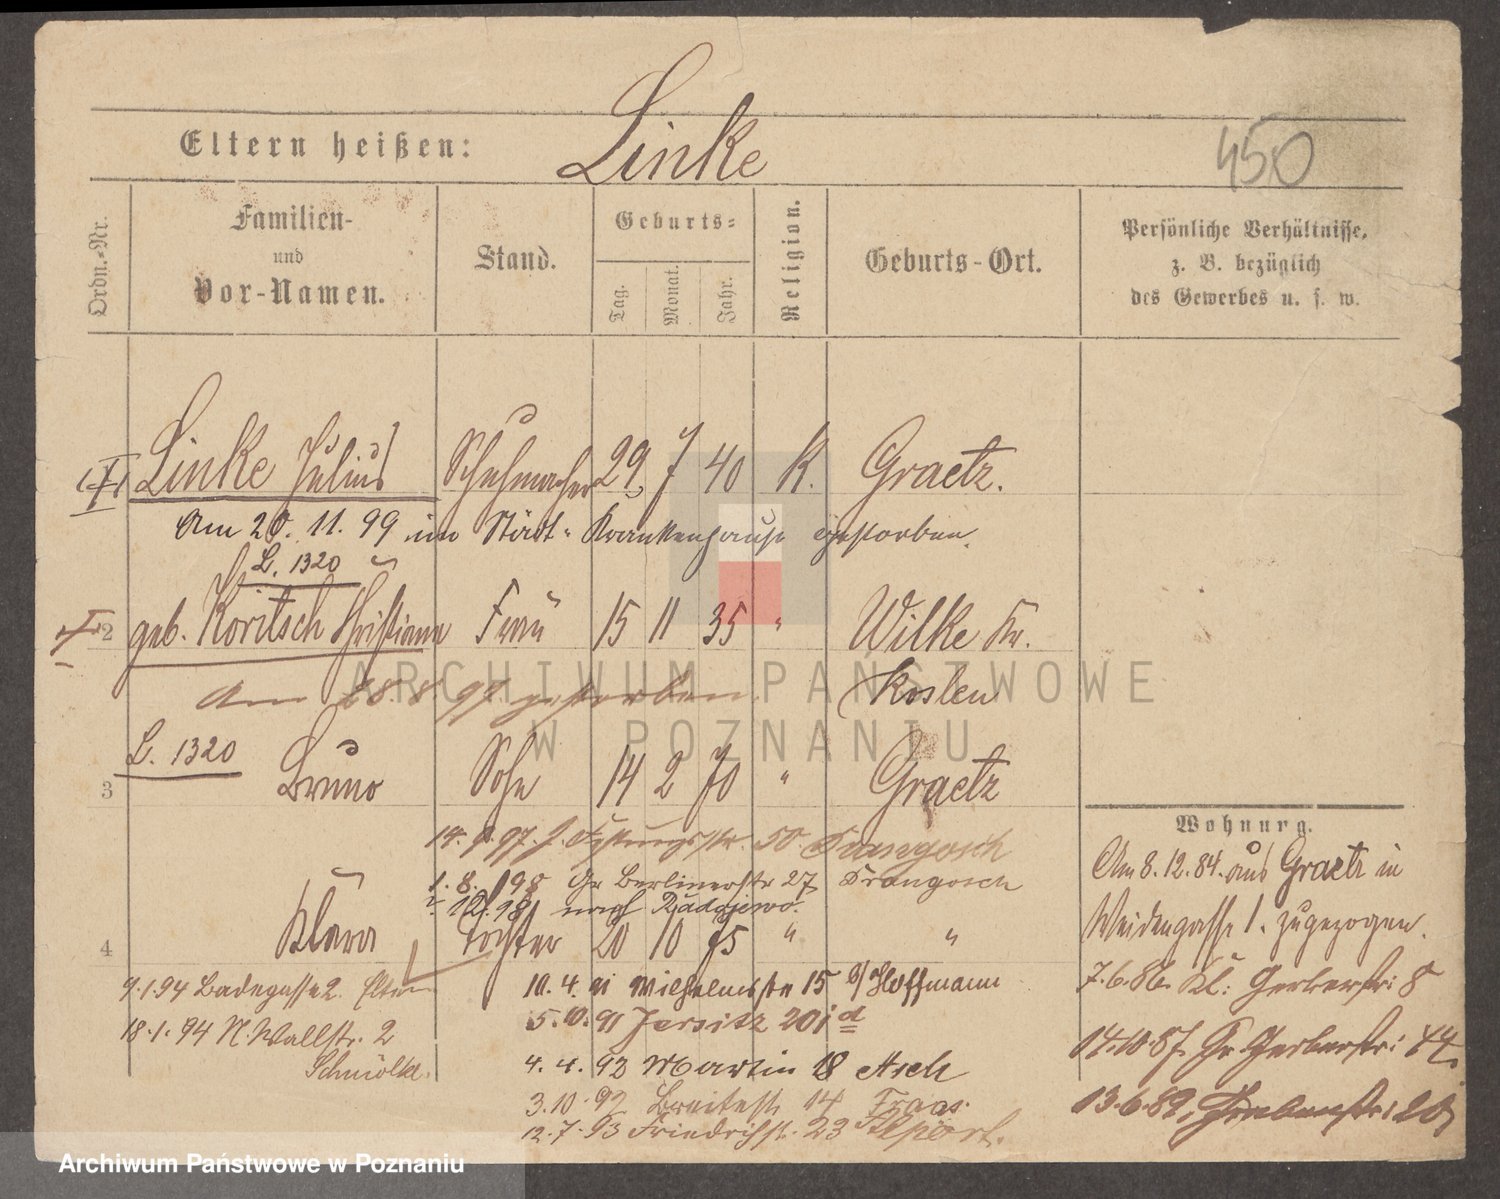 Linke
450
Eltern heißen:
Ordn.-Nr.
Familien-
und
Vor-Namen.
Stand.
Geburts-
Tag.
Monat.
Jahr.
Religion.
Geburts-Ort.
Persönliche Verhältnisse,
z. B. bezüglich
des Gewerbes u. s. w.
Linke Julius Schuhmacher 29 7 40 K. Graetz.
Am 20. 11. 99 im Städt. Krankenhause gestorben.
L. 1320
2 geb. Koritsch Christiane Frau 15 11 35 " Wilke Kr.
Am 28. 8 97 gestorben Kosten
L. 1320
3 Bruno Sohn 14 2 70 " Graetz
14. 9. 97. 50. Drangosch
1. 8. 98 Gr Berlinerstr 27 Drangosch
nach Radojewo.
4 Klara Tochter 20 10 75 " "
9.1.94 Badegasse 2. Eltern
18.1.94 N. Wallstr. 2
10. 4. Wilhelmstr 15 b/Hoffmann
5. 10. 91 Jersitz 201 d
4. 4. 92 Martin 18 Asch
3. 10. 92 Breitestr 14 Fraas.
12. 7. 93 Friedrichstr. 23
Wohnung.
Am 8. 12. 84. aus Graetz in
Weidengasse 1. zugezogen.
7. 6. 86. Kl. Gerberstr: 8
14.10.87. Gr. Gerberstr: 44.
13. 6. 89,
ARCHIWUM PAŃSTWOWE
W POZNANIU
Archiwum Państwowe w Poznaniu